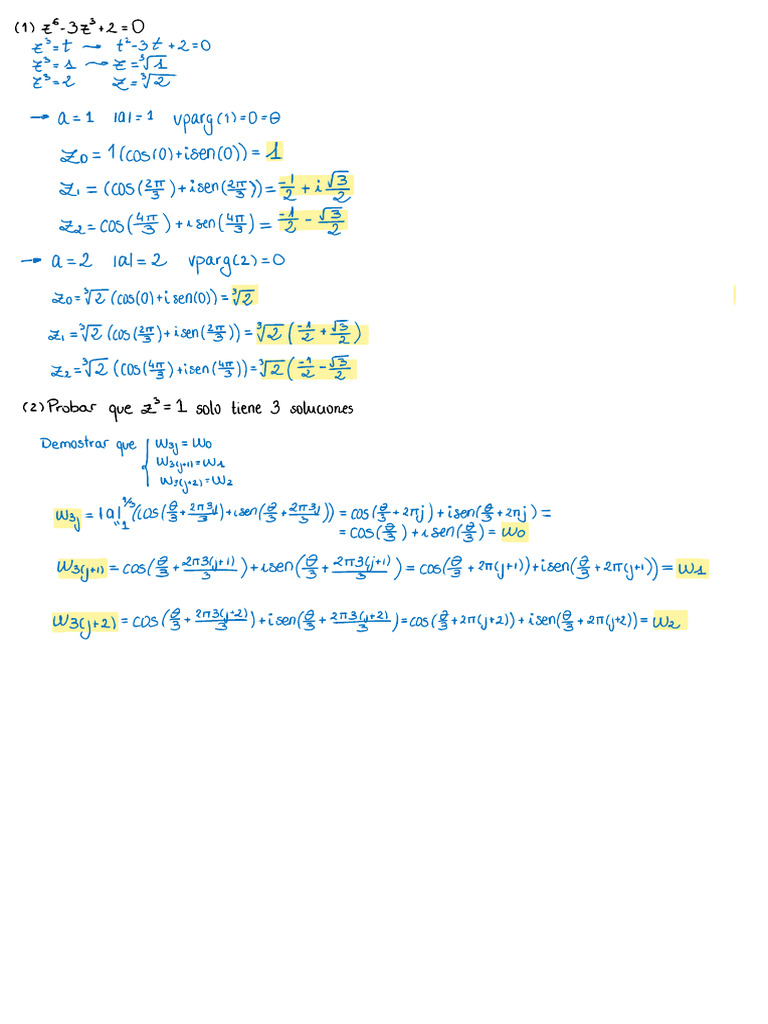 (1) z⁶-3z³+2=0
z³=t → t²-3t+2=0
z³=1 → z=∛1
z³=2 z=∛2
→ a=1 |a|=1 vparg(1)=0=θ
z₀=1(cos(0)+isen(0))=1
z₁=(cos(2π/3)+isen(2π/3))=-1/2+i√3/2
z₂=cos(4π/3)+isen(4π/3)=-1/2-√3/2
→ a=2 |a|=2 vparg(2)=0
z₀=∛2(cos(0)+isen(0))=∛2
z₁=∛2(cos(2π/3)+isen(2π/3))=∛2(-1/2+√3/2)
z₂=∛2(cos(4π/3)+isen(4π/3))=∛2(-1/2-√3/2
(2) Probar que z³=1 solo tiene 3 soluciones
Demostrar que { w3j=w0
w3(j+1)=w1
w3(j+2)=w2
w3j=|a|^1/3(cos(θ/3+2π3j/3)+isen(θ/3+2π3j/3))=cos(θ/3+2πj)+isen(θ/3+2πj)=
"1
=cos(θ/3)+isen(θ/3)=w0
w3(j+1)=cos(θ/3+2π3(j+1)/3)+isen(θ/3+2π3(j+1)/3)=cos(θ/3+2π(j+1))+isen(θ/3+2π(j+1))=w1
w3(j+2)=cos(θ/3+2π3(j+2)/3)+isen(θ/3+2π3(j+2)/3)=cos(θ/3+2π(j+2))+isen(θ/3+2π(j+2))=w2